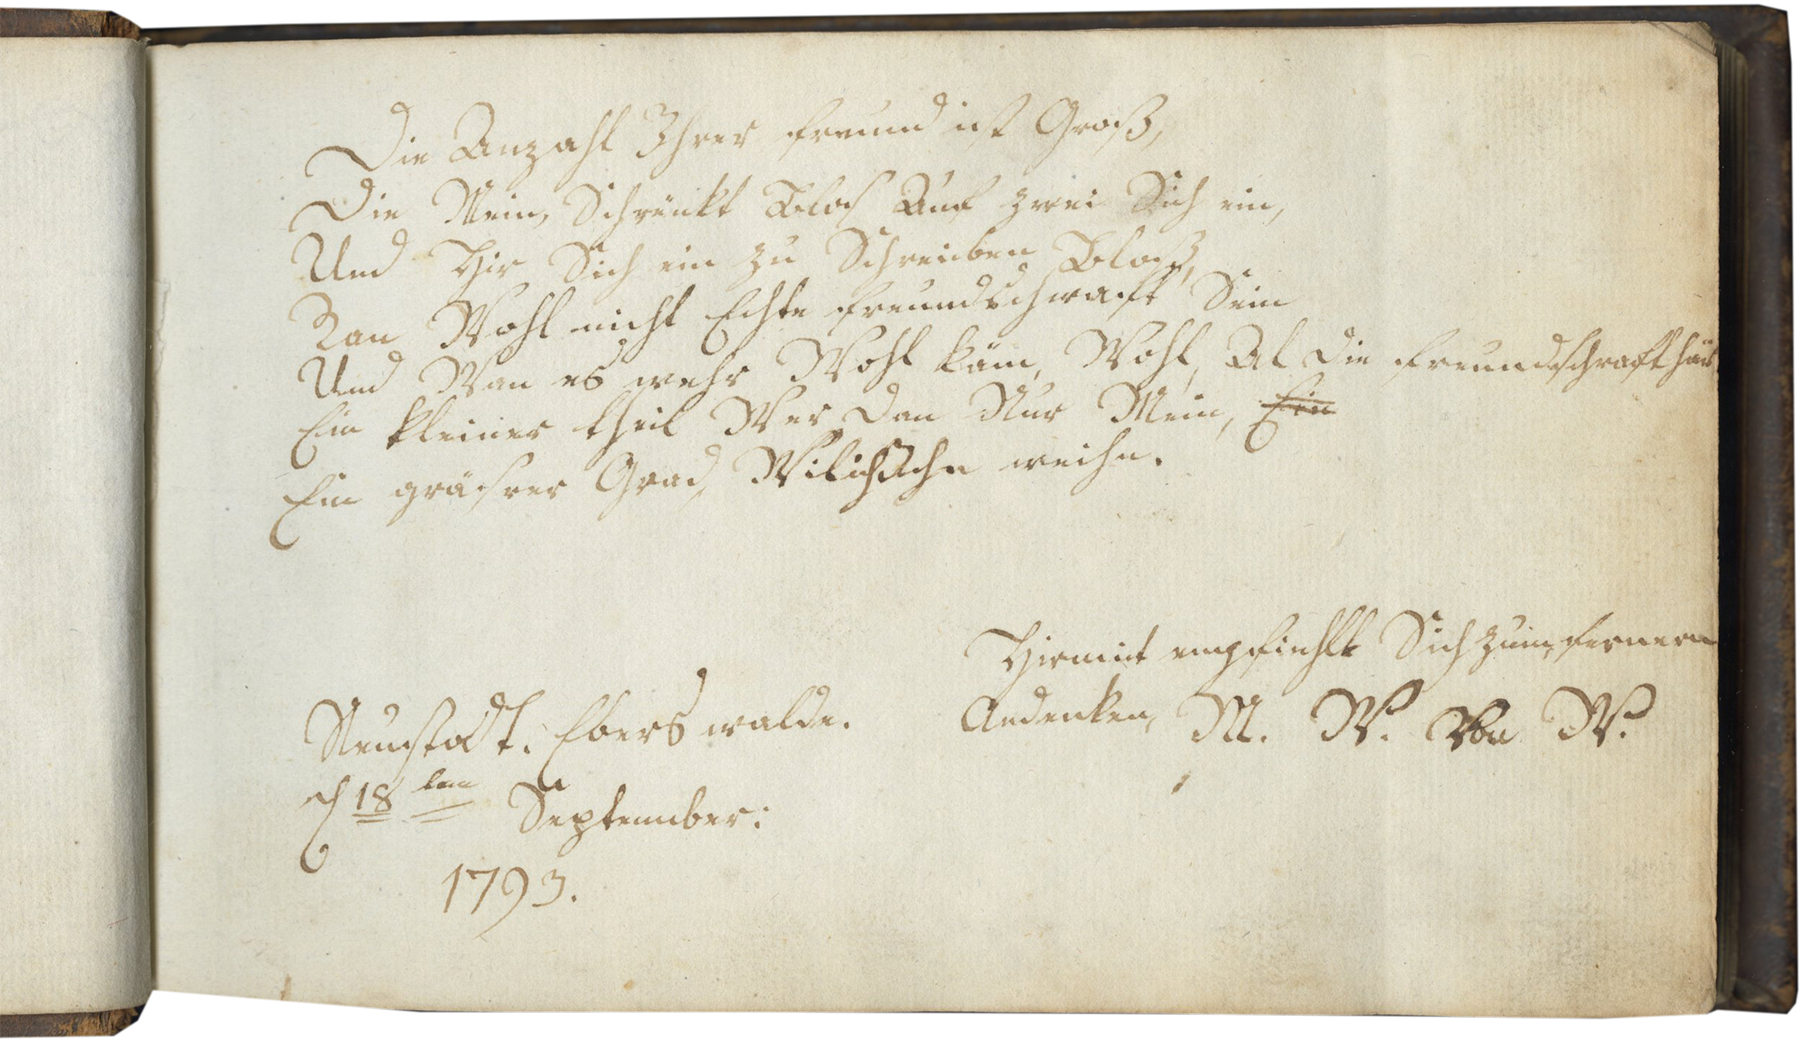 Die Anzahl Ihrer freund ist Groß,
Die Mein, Schränkt Blos Auf zwei Sich ein,
Und Hir Sich ein zu Schreiben Blos,
Kan Wohl nicht Echte freundschaft Sein
Und Wan es wehr Wohl käm, Wohl, Al die freundschaft hät
Ein kleiner theil Wer dan Nur Mein, Ein
Ein gräsrer Grad, Will ich Ihn weihn.
Hiermit empfiehlt Sich zum fernern
Andenken, M. W. Von W.
Neustadt. Eberswalde.
d 18 ten September:
1793.